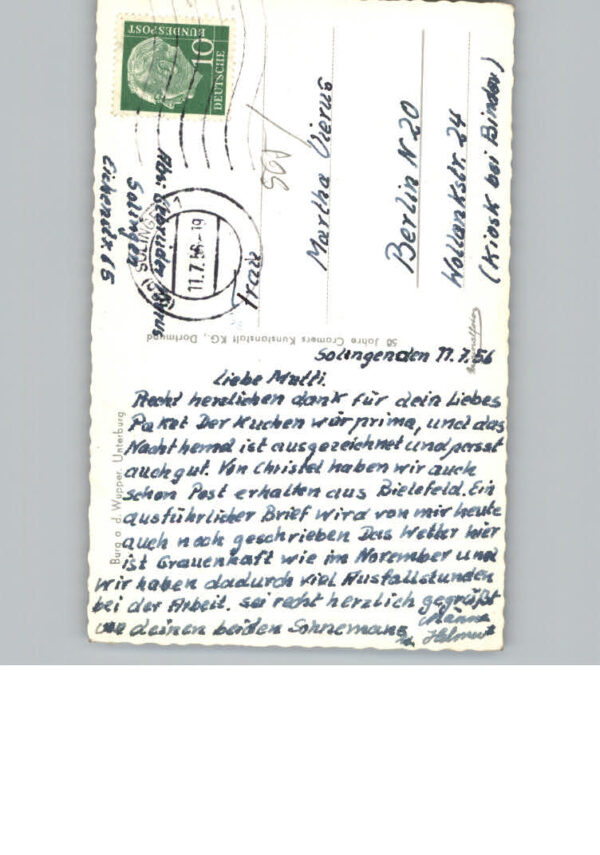 10
DEUTSCHE
BUNDESPOST
SOLINGEN
11.7.56.-19
Abs:
Solingen
Eichenstr. 65
Frau
Martha Vierus
Berlin N 20
Wollankstr. 24
(Kiosk bei Binder)
50 Jahre Cramers Kunstanstalt KG., Dortmund
Burg a. d. Wupper. Unterburg
Solingen den 11.7.56
Liebe Mutti.
Recht herzlichen dank für dein Liebes
Paket Der Kuchen war prima, und das
Nachthemd ist ausgezeichnet und passt
auch gut. Von Christel haben wir auch
schon Post erhalten aus Bielefeld. Ein
ausführlicher Brief wird von mir heute
auch noch geschrieben Das Wetter hier
ist Grauenhaft wie im November und
wir haben dadurch viel Ausfallstunden
bei der Arbeit. sei recht herzlich gegrüßt
von deinen beiden Sohnemans
Helmut